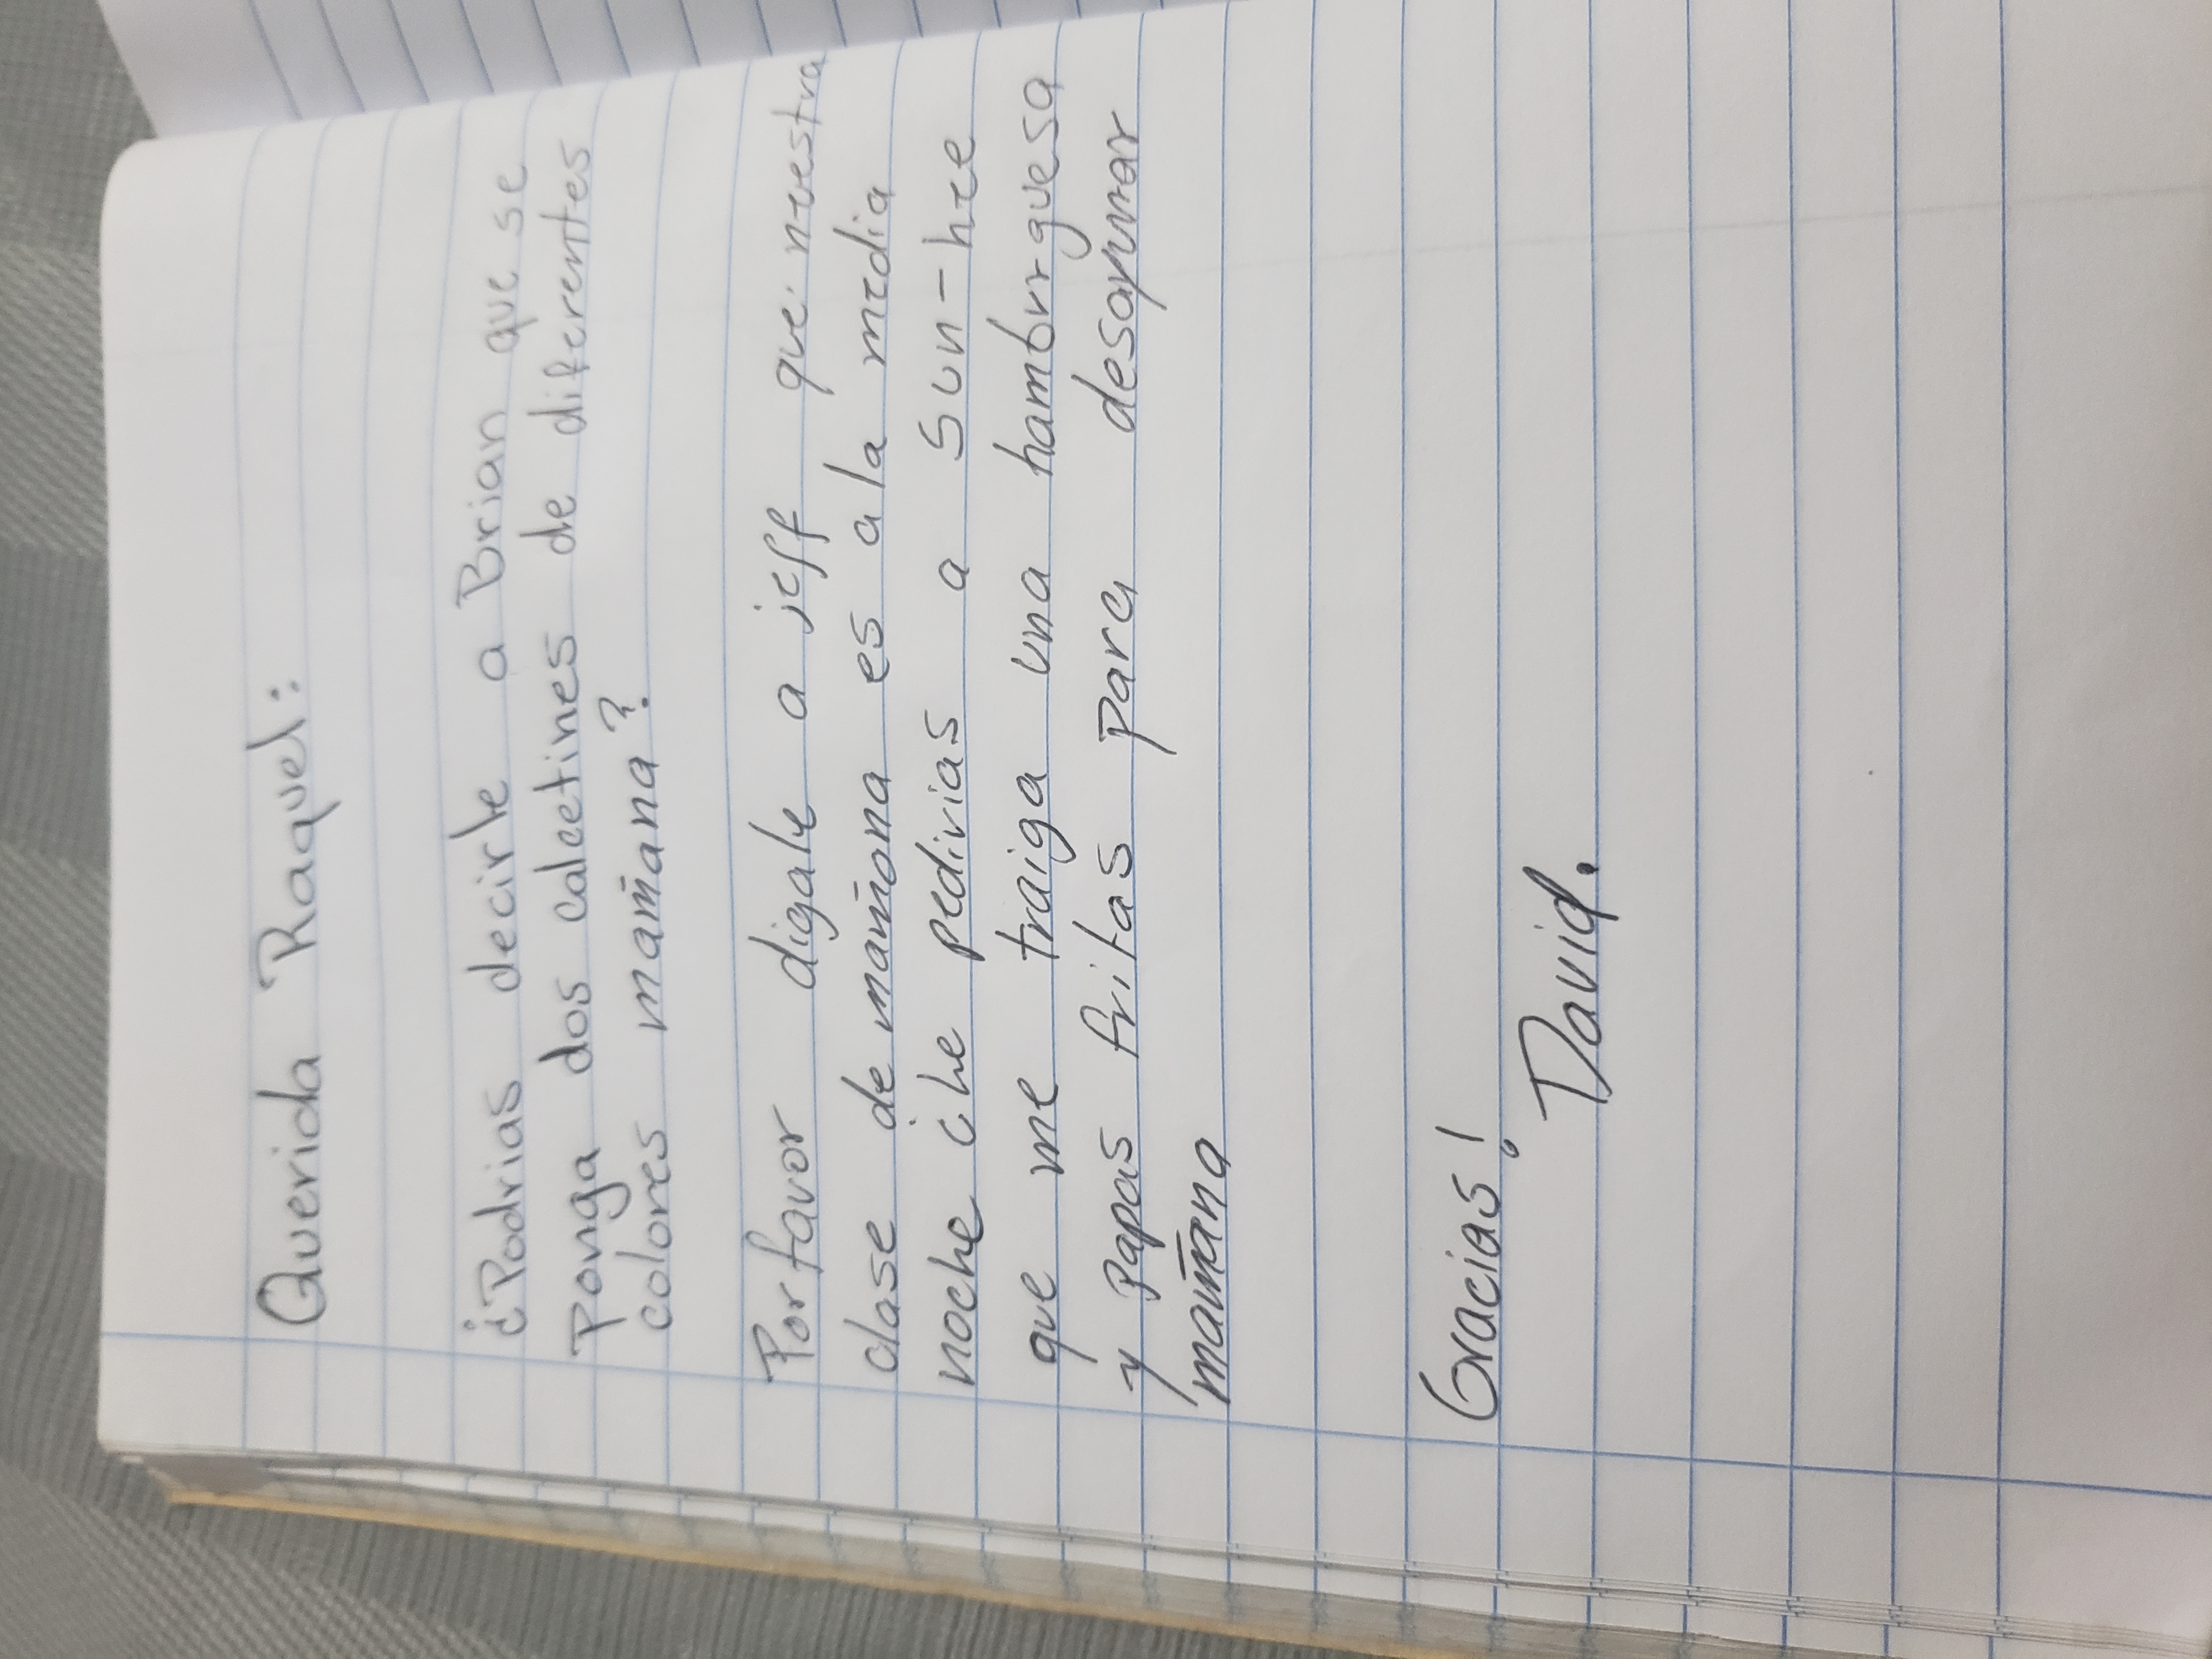 Querida Raquel:
¿Podrias decirle a Brian que se
Ponga dos calcetines de diferentes
colores mañana?
Por favor digale a jeff que nuestra
clase de mañana es a la media
noche ¿he pedirias a Sun-hee
que me traiga una hamburguesa
y Papas fritas para desayunar
mañana
Gracias!
David.